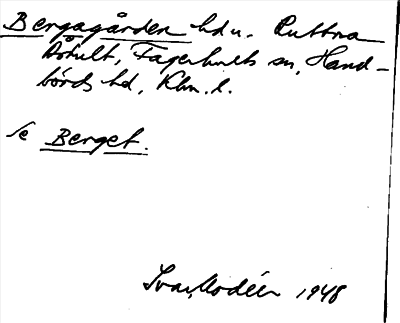 Bergagården hd u. Ruttna
Dohult, Fagerhults sn, Hand-
börds hd, Klm. l.
se Berget.
Ivar Modéer 1948